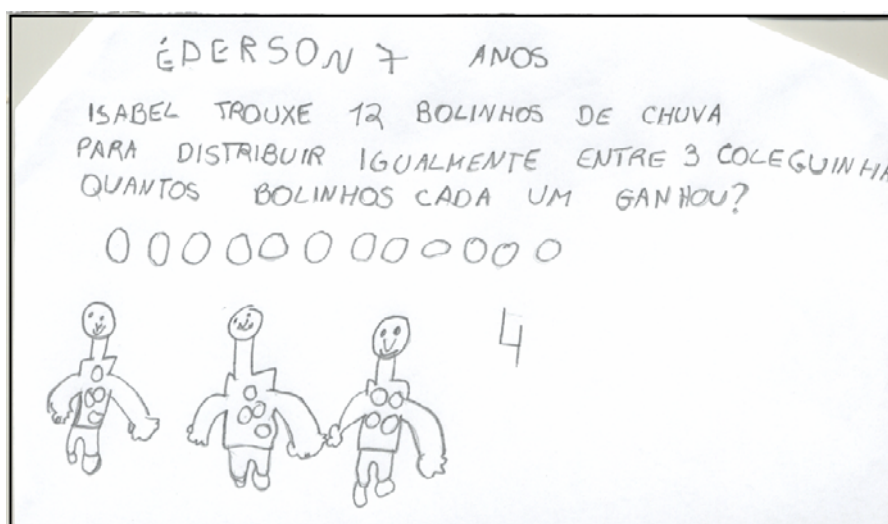 ÉDERSON 7 ANOS
ISABEL TROUXE 12 BOLINHOS DE CHUVA
PARA DISTRIBUIR IGUALMENTE ENTRE 3 COLEGUINHA
QUANTOS BOLINHOS CADA UM GANHOU?
4